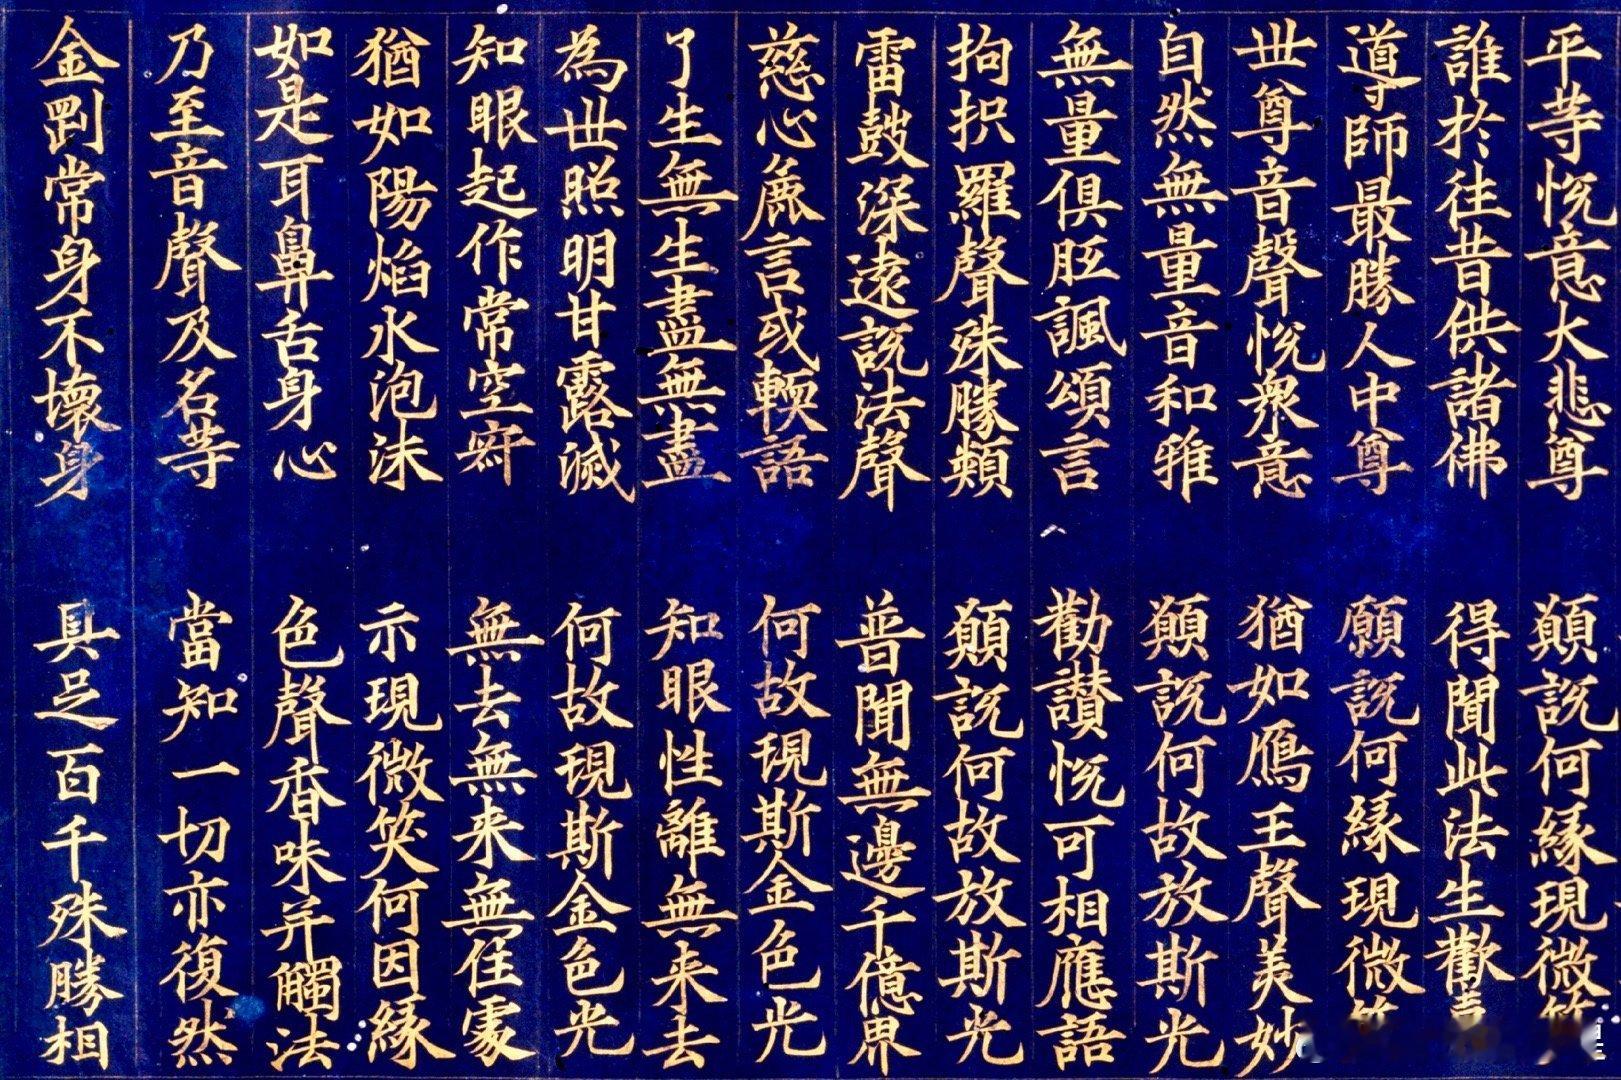 平等悅意大悲尊 願說何緣現微笑
誰於往昔供諸佛 得聞此法生歡喜
導師最勝人中尊 願說何緣現微笑
世尊音聲悅眾意 猶如鴈王聲美妙
自然無量音和雅 願說何故放斯光
無量俱胝諷頌言 勸讚悅可相應語
拘抧羅聲殊勝類 願說何故放斯光
雷鼓深遠說法聲 普聞無邊千億界
慈心麁言或軟語 何故現斯金色光
了生無生盡無盡 知眼性離無來去
為世照明甘露滅 何故現斯金色光
知眼起作常空寂 無去無来無住處
猶如陽焰水泡沫 示現微笑何因緣
如是耳鼻舌身心 色聲香味并觸法
乃至音聲及名等 當知一切亦復然
金剛常身不壞身 具足百千殊勝相